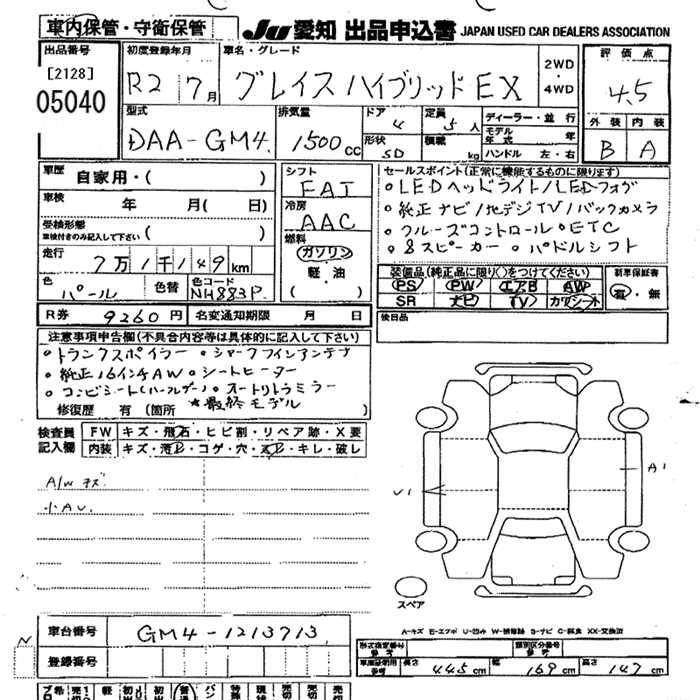 車内保管・守衛保管
JU 愛知 出品申込書 JAPAN USED CAR DEALERS ASSOCIATION
出品番号 初度登録年月 車名・グレード 評価点
[2128] R2 7月 グレイス ハイブリッド EX 2WD・4WD 4.5
05040
型式 排気量 ドア 定員 ディーラー・並行 外装 内装
DAA-GM4 1500cc 4 5人 モデル年式 年 B A
形状 SD 積載 kg ハンドル 左・右
車歴 自家用・( )
シフト FAT
セールスポイント(正常に機能するものに限ります)
・LEDヘッドライト/LEDフォグ
・純正ナビ/地デジTV/バックカメラ
・クルーズコントロール ・ETC
・8スピーカー ・パドルシフト
車検 年 月( 日)
冷房 AAC
受検形態
車検付きのみ記入して下さい( )
燃料 ガソリン 軽・油 ( )
走行 7万1千149km
色 パール 色替 色コード NH883P
装備品(純正品に限り○をつけてください)
PS PW エアB AW
SR ナビ TV カワシート
新車保証書
有・無
R券 9260円 名変通知期限 月 日
後日品
注意事項申告欄(不具合内容等は具体的に記入して下さい)
・トランクスポイラー ・シャークフィンアンテナ
・純正16インチAW ・シートヒーター
・コンビシート(ハーフレザー) ・オートリトラミラー
★最終モデル
修復歴 有(箇所 )
検査員記入欄 FW キズ・飛石・ヒビ割・リペア跡・X要
内装 キズ・汚レ・コゲ・穴・スレ・キレ・破レ
A/W キズ
小AU
U1
A1
スペア
A-キズ E-エクボ U-凹み W-補修跡 S-サビ C-腐食 XX-交換済
車台番号 GM4-1213713
登録番号
形式指定番号 参考 類別区分番号 参考
車庫証明用 参考 長さ 445cm 幅 169cm 高さ 147cm